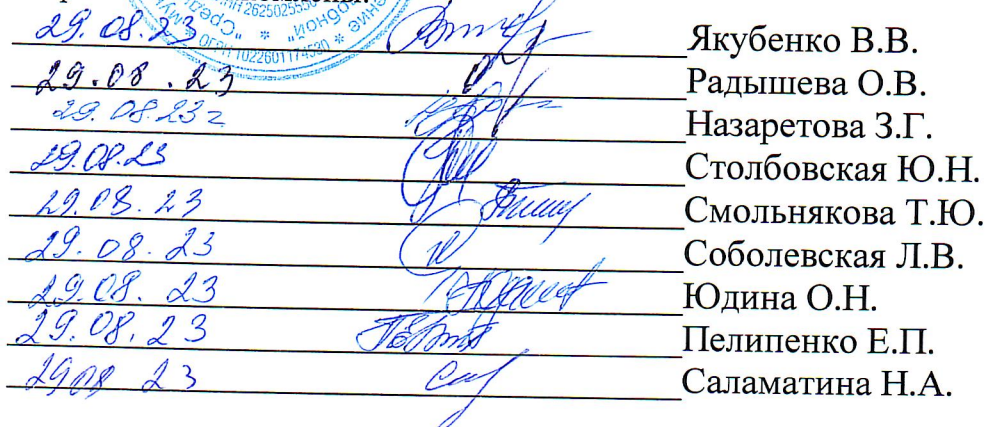 29.08.23 Якубенко В.В.
29.08.23 Радышева О.В.
29.08.23 г Назаретова З.Г.
29.08.23 Столбовская Ю.Н.
29.08.23 Смольнякова Т.Ю.
29.08.23 Соболевская Л.В.
29.08.23 Юдина О.Н.
29.08.23 Пелипенко Е.П.
29 08 23 Саламатина Н.А.